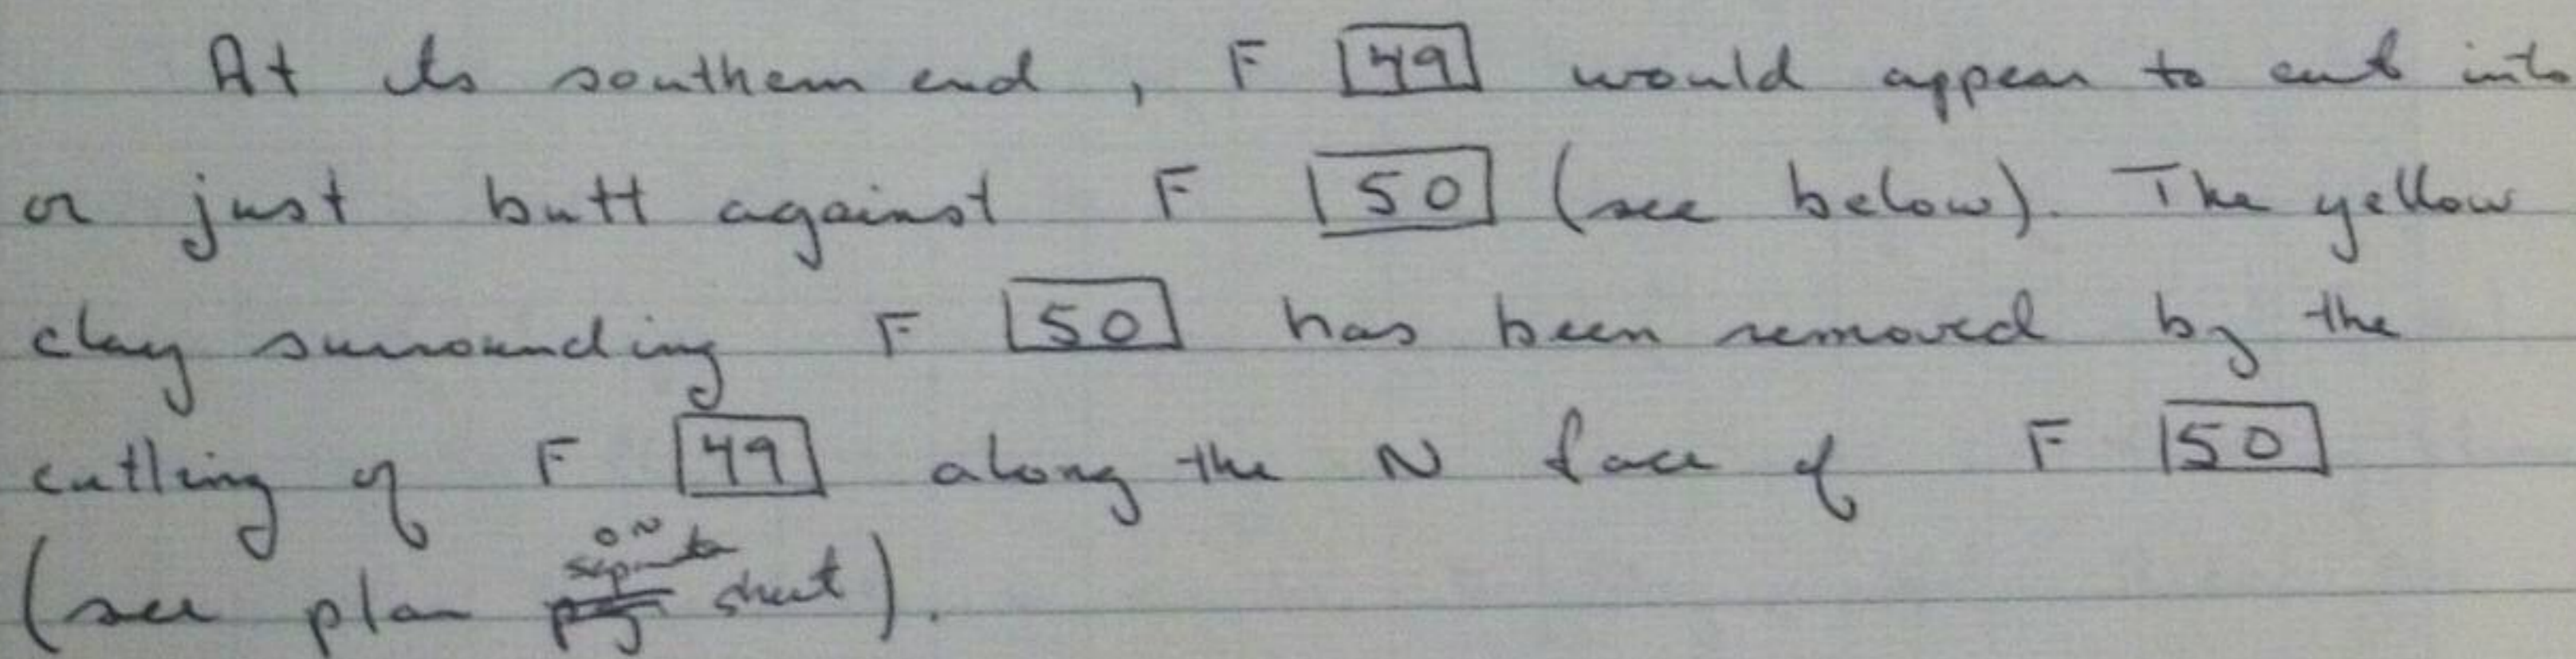 At its southern end, F 49 would appear to cut into
or just butt against F 50 (see below). The yellow
clay surrounding F 50 has been removed by the
cutting of F 49 along the N face of F 50
(see plan on separate sheet).